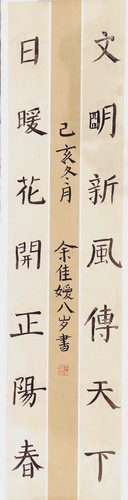 文明新風傳天下
日暖花開正陽春
己亥冬月
余佳嬡八岁書